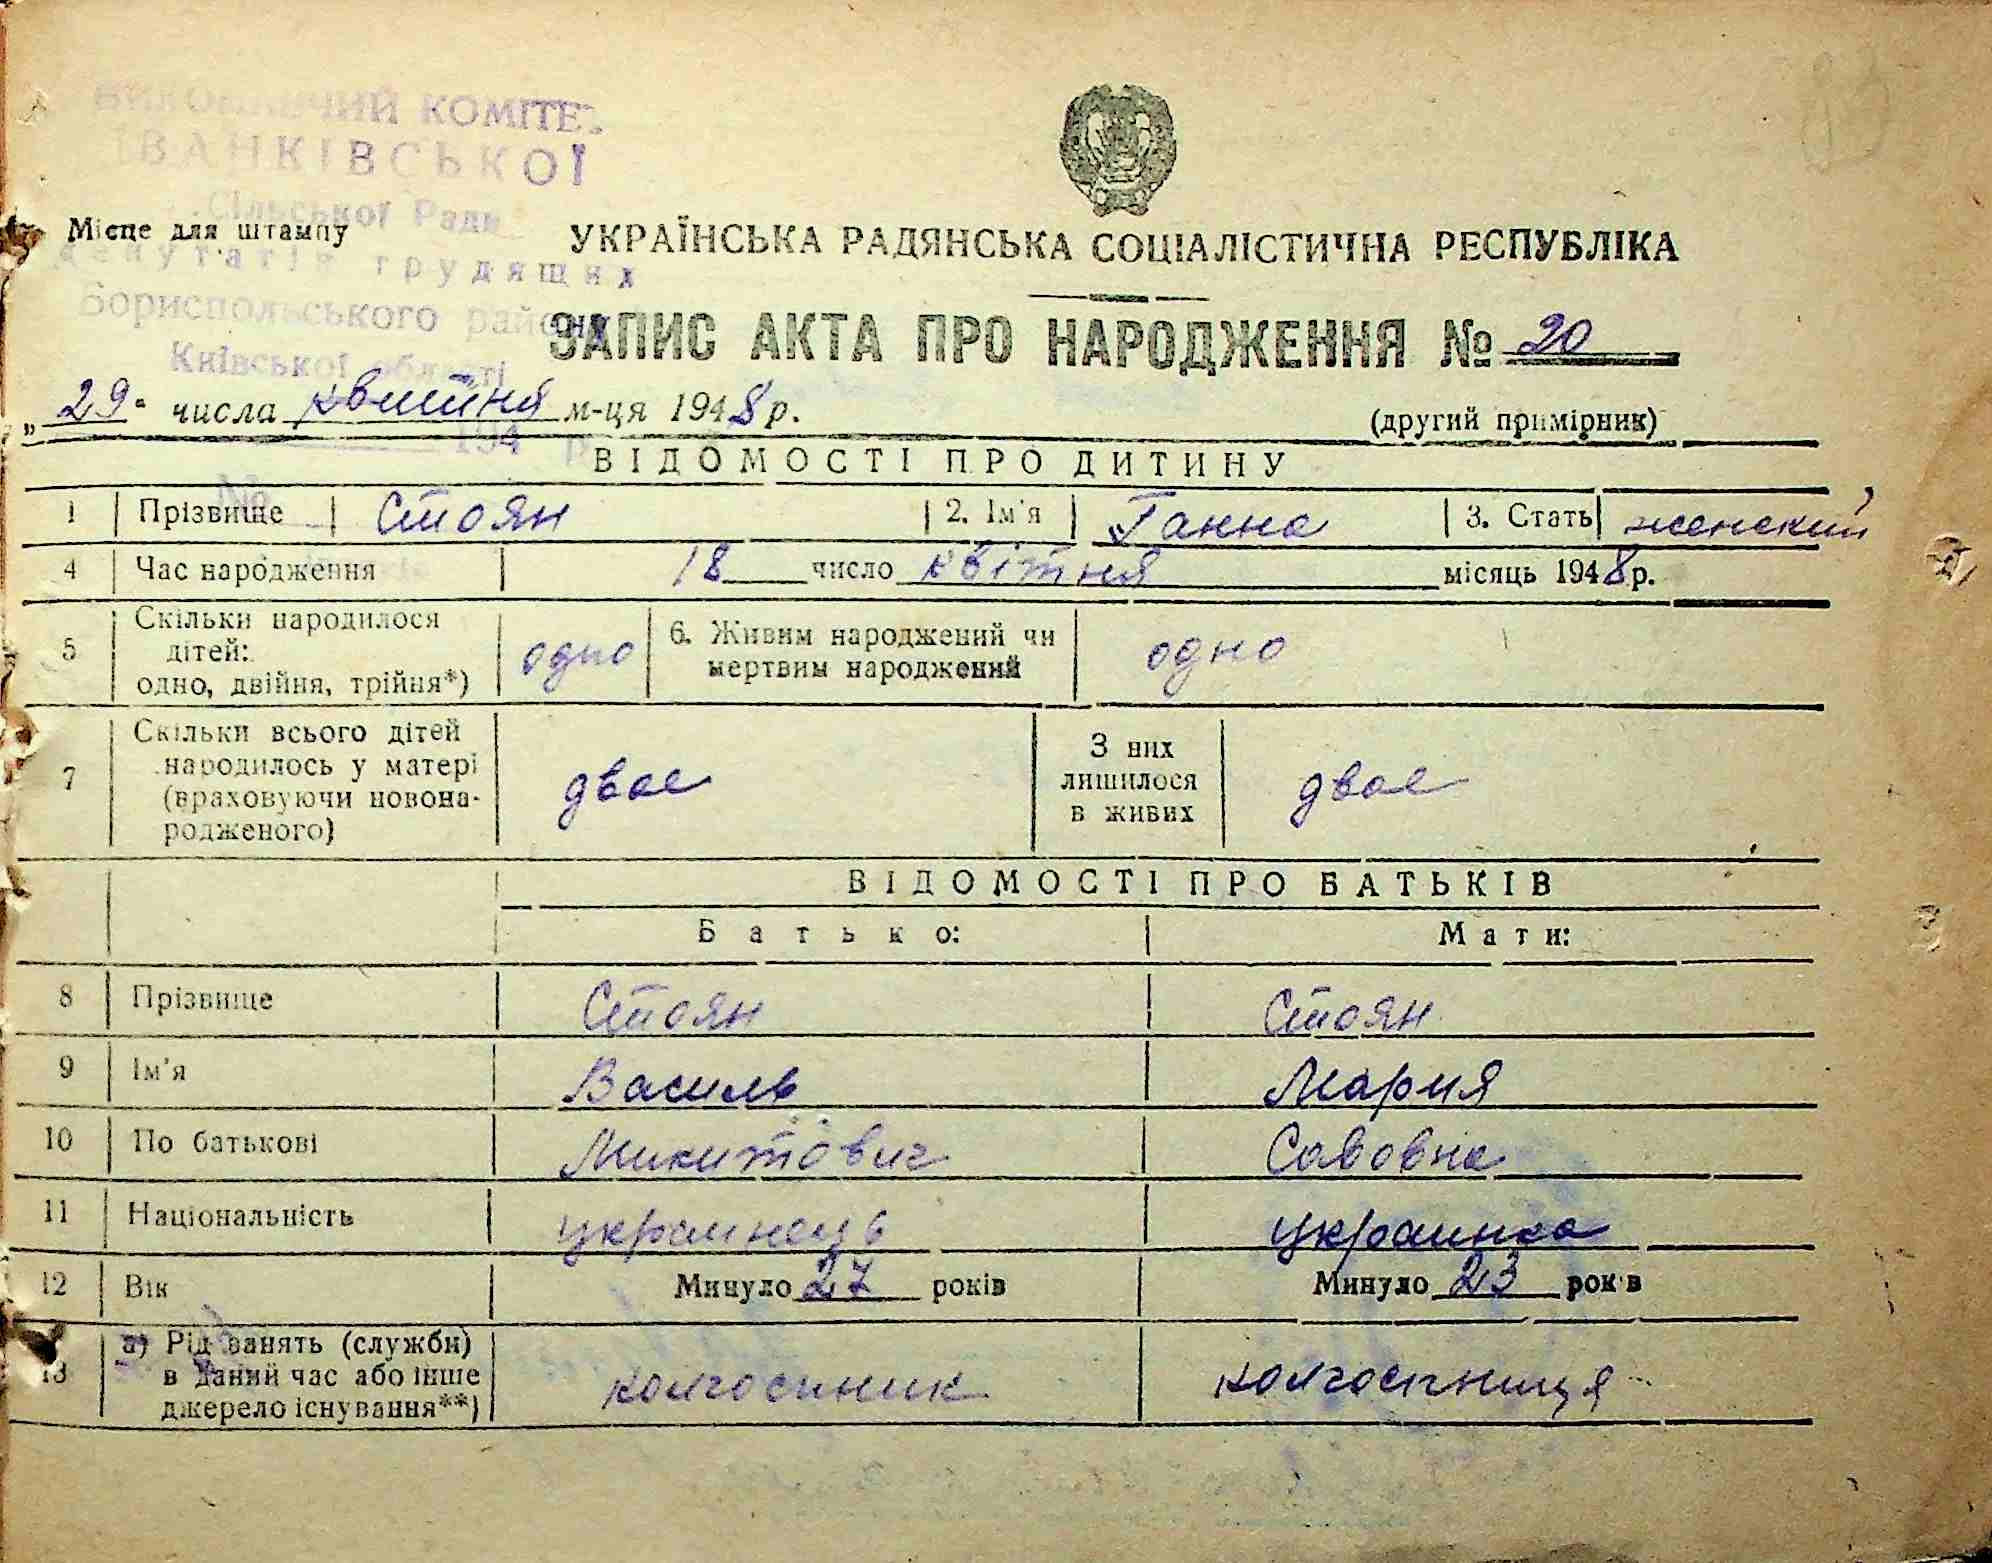 ВИКОНАВЧИЙ КОМІТЕТ
ІВАНКІВСЬКОЇ
Сільської Ради
депутатів трудящих
Бориспольського району
Київської області
194 р.
№
Місце для штампу
УКРАЇНСЬКА РАДЯНСЬКА СОЦІАЛІСТИЧНА РЕСПУБЛІКА
ЗАПИС АКТА ПРО НАРОДЖЕННЯ № 20
„29" числа квитня м-ця 1948 р.
(другий примірник)
ВІДОМОСТІ ПРО ДИТИНУ
1 Прізвище Стоян 2. Ім'я Ганна 3. Стать женский
4 Час народження 18 число квітня місяць 1948 р.
5 Скільки народилося дітей: одно, двійня, трійня*) одно 6. Живим народжений чи мертвим народжений одно
7 Скільки всього дітей народилось у матері (враховуючи новонародженого) двое З них лишилося в живих двое
ВІДОМОСТІ ПРО БАТЬКІВ
Батько: Мати:
8 Прізвище Стоян Стоян
9 Ім'я Василь Мария
10 По батькові Микитович Савовна
11 Національність украинець украинка
12 Вік Минуло 27 років Минуло 23 років
13 а) Рід занять (служби) в даний час або інше джерело існування**) колгоспник колгоспниця